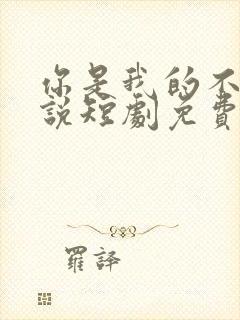 你是我的不
說短劇免費
羅譯